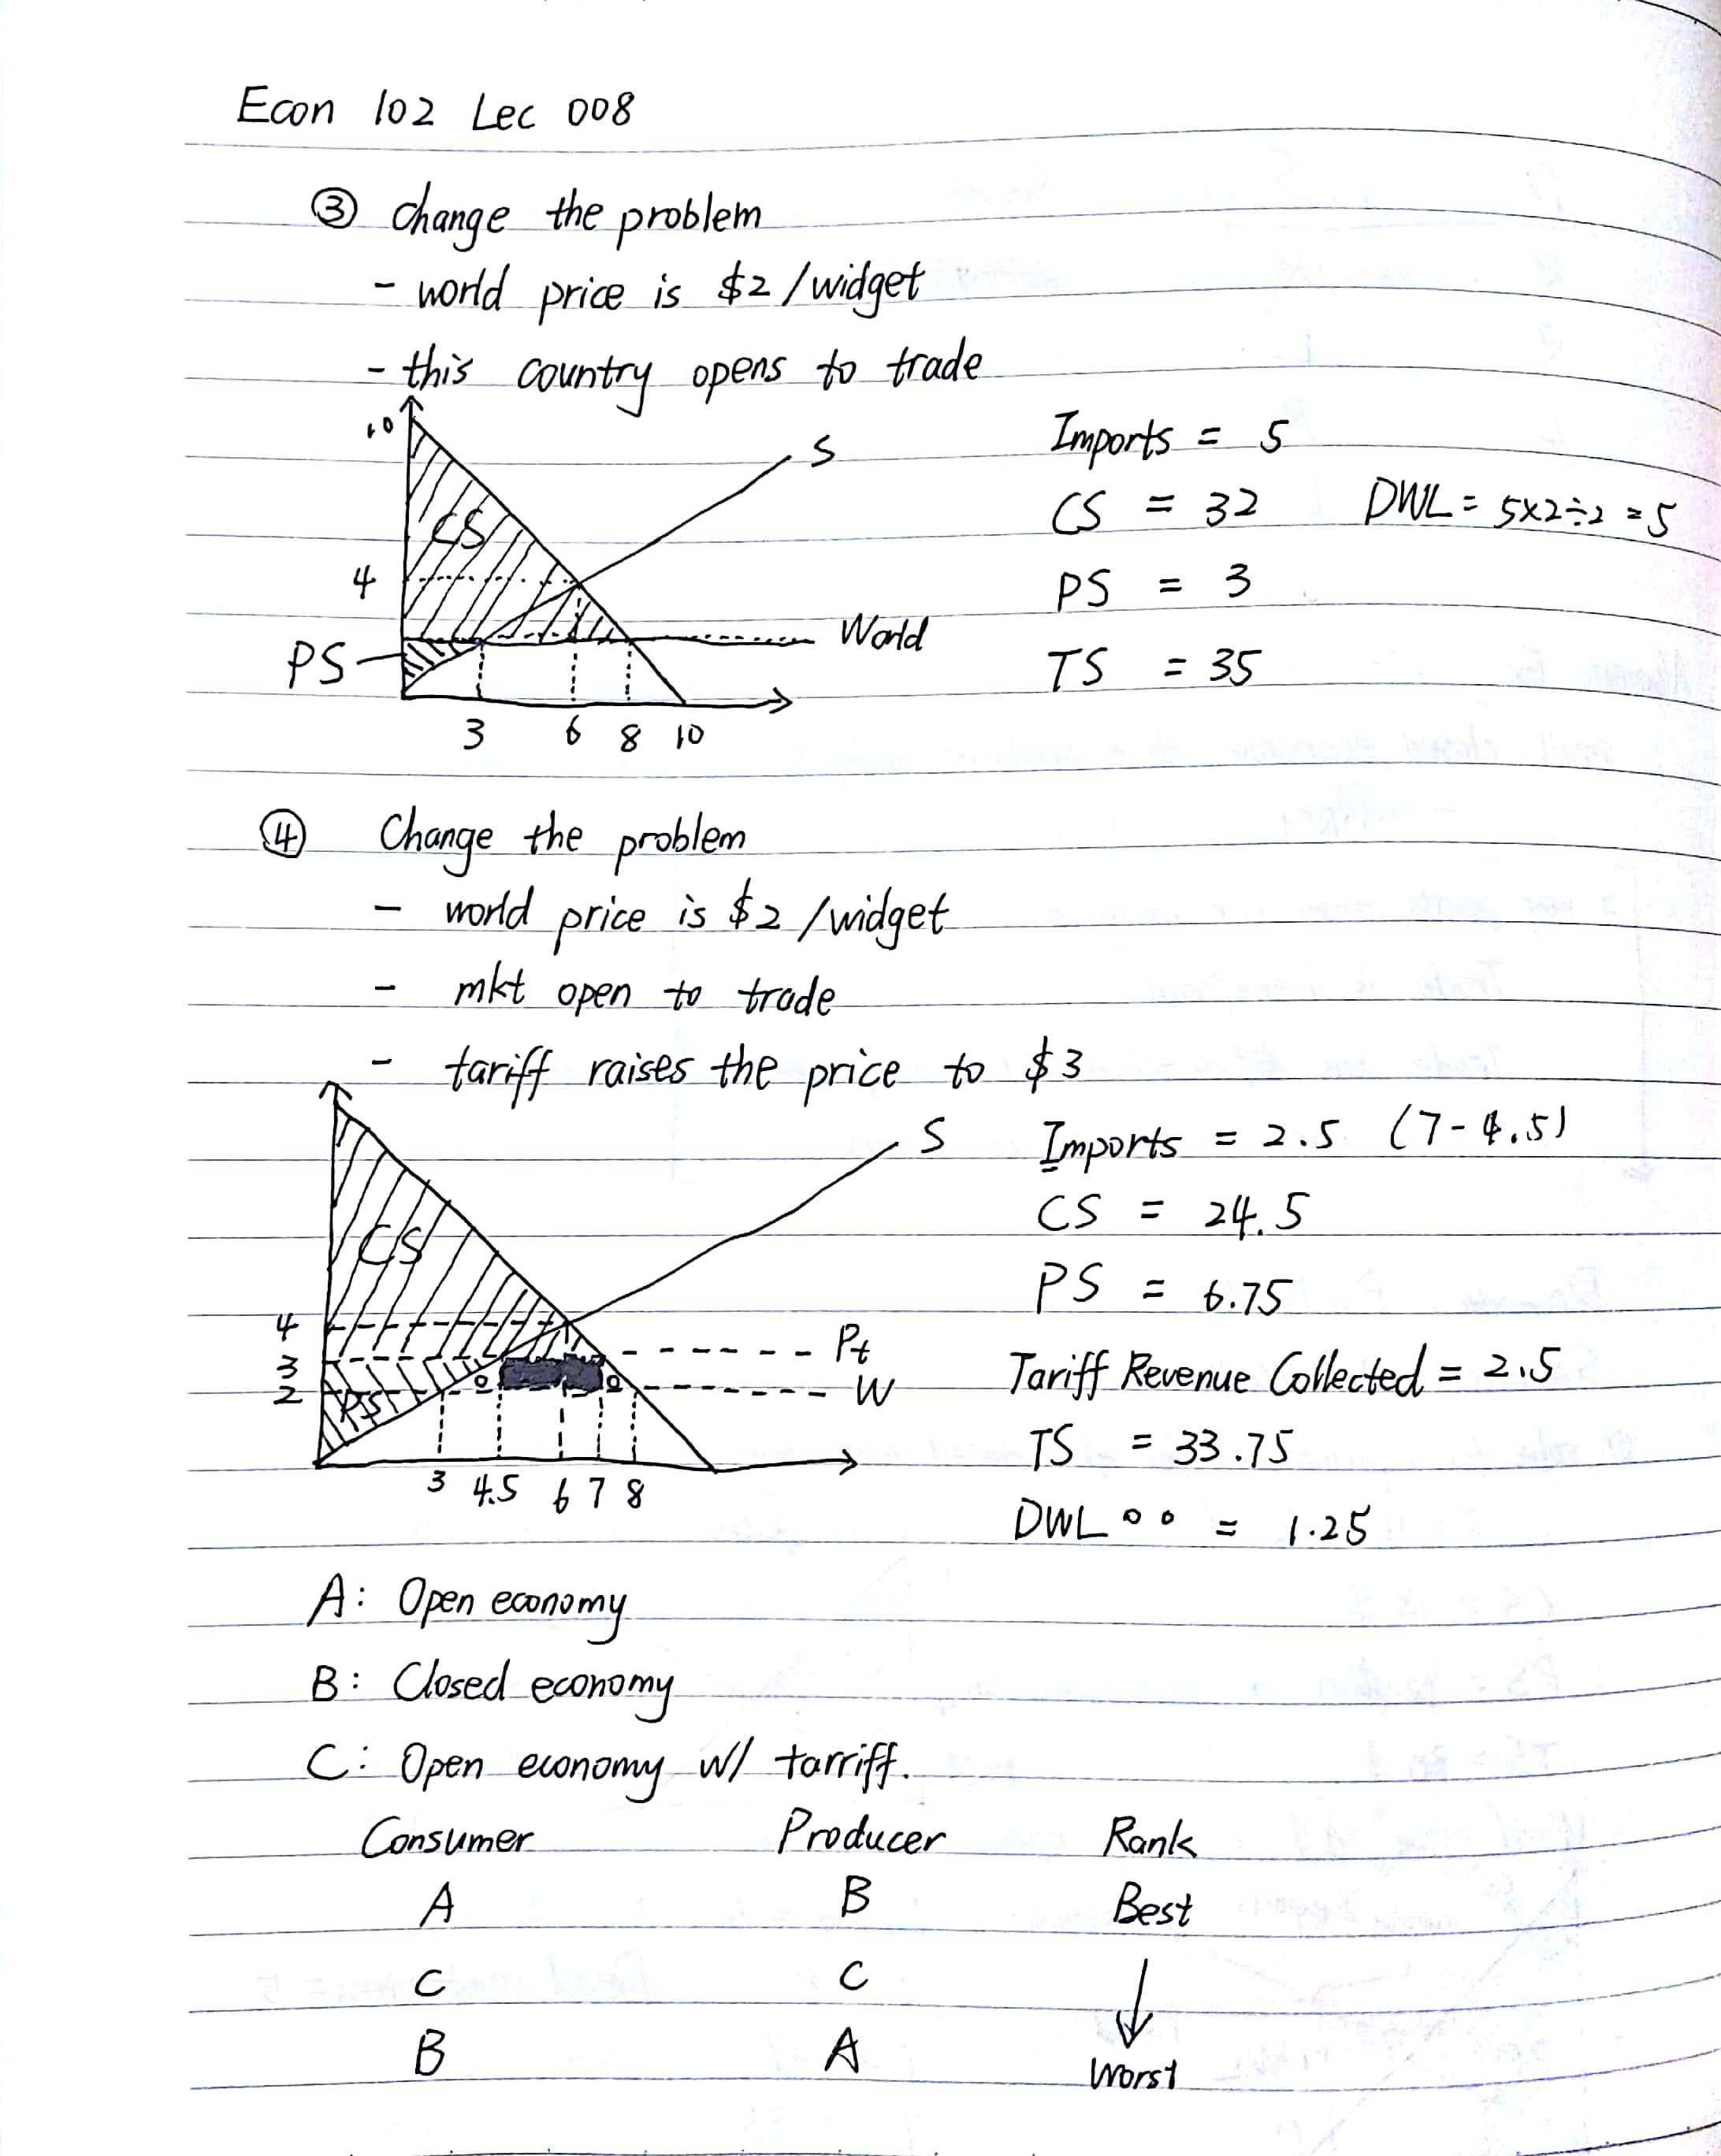 Econ 102 Lec 008
③ Change the problem
- world price is $2/widget
- this country opens to trade
10
S
CS
4
World
PS
3 6 8 10
Imports = 5
CS = 32 DWL = 5×2÷2 = 5
PS = 3
TS = 35
④ Change the problem
- world price is $2/widget
- mkt open to trade
- tariff raises the price to $3
S
CS
4
3 Pt
2 W
PS
3 4.5 6 7 8
Imports = 2.5 (7-4.5)
CS = 24.5
PS = 6.75
Tariff Revenue Collected = 2.5
TS = 33.75
DWL ∘∘ = 1.25
A: Open economy
B: Closed economy
C: Open economy w/ tarriff.
Consumer Producer Rank
A B Best
C C ↓
B A Worst